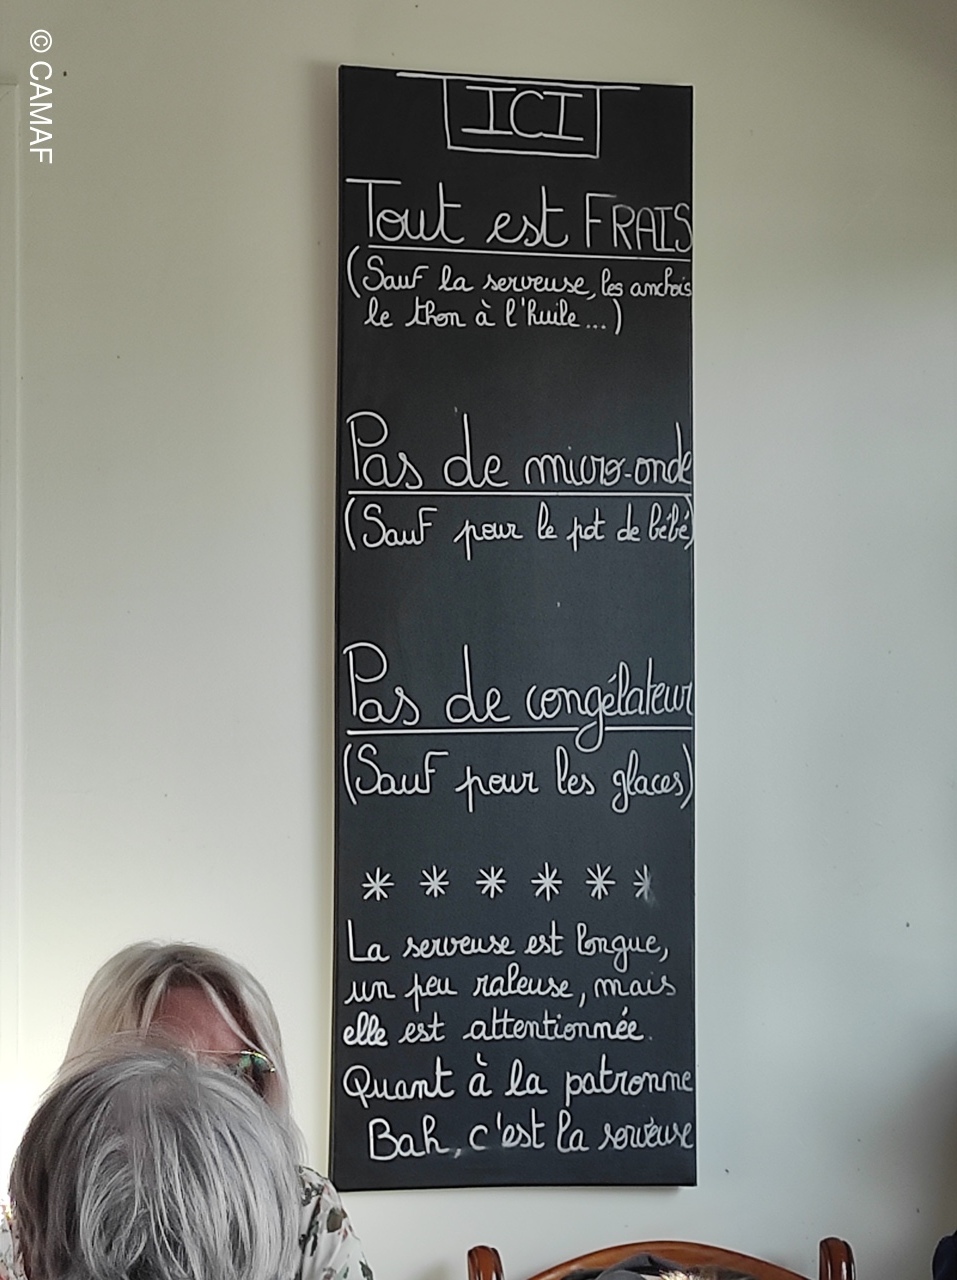 © CAMAF
ICI
Tout est FRAIS
(Sauf la serveuse, les anchois
le thon à l'huile...)
Pas de micro-onde
(Sauf pour le pot de bébé)
Pas de congélateur
(Sauf pour les glaces)
* * * * * *
La serveuse est longue,
un peu raleuse, mais
elle est attentionnée.
Quant à la patronne
Bah, c'est la serveuse